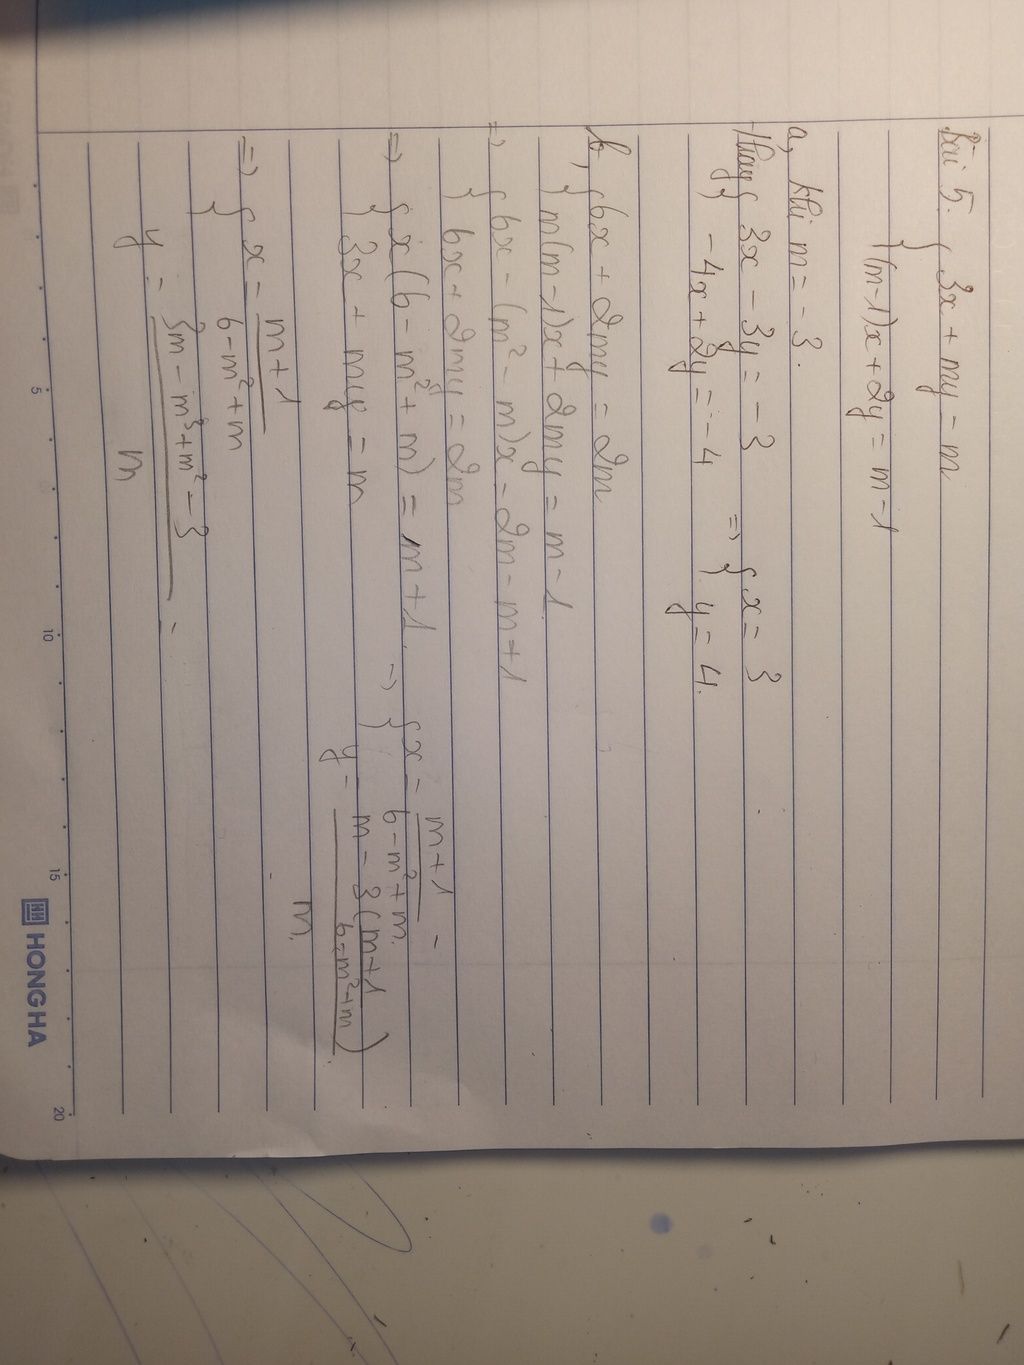 Bài 5. { 3x + my = m
(m-1)x + 2y = m-1
a, khi m = -3.
Thay { 3x - 3y = -3 => { x = 3
-4x + 2y = -4 y = 4.
b, { 6x + 2my = 2m
m(m-1)x + 2my = m-1
=> { 6x - (m² - m)x = 2m - m + 1
6x + 2my = 2m
=> { x(6 - m² + m) = m + 1 => { x = m+1 / 6 - m² + m.
3x + my = m y = m - 3(m+1 / 6 - m² + m) / m.
=> { x = m+1 / 6 - m² + m
y = 3m - m³ + m² - 3 / m =
5 10 15 20
HONG HA